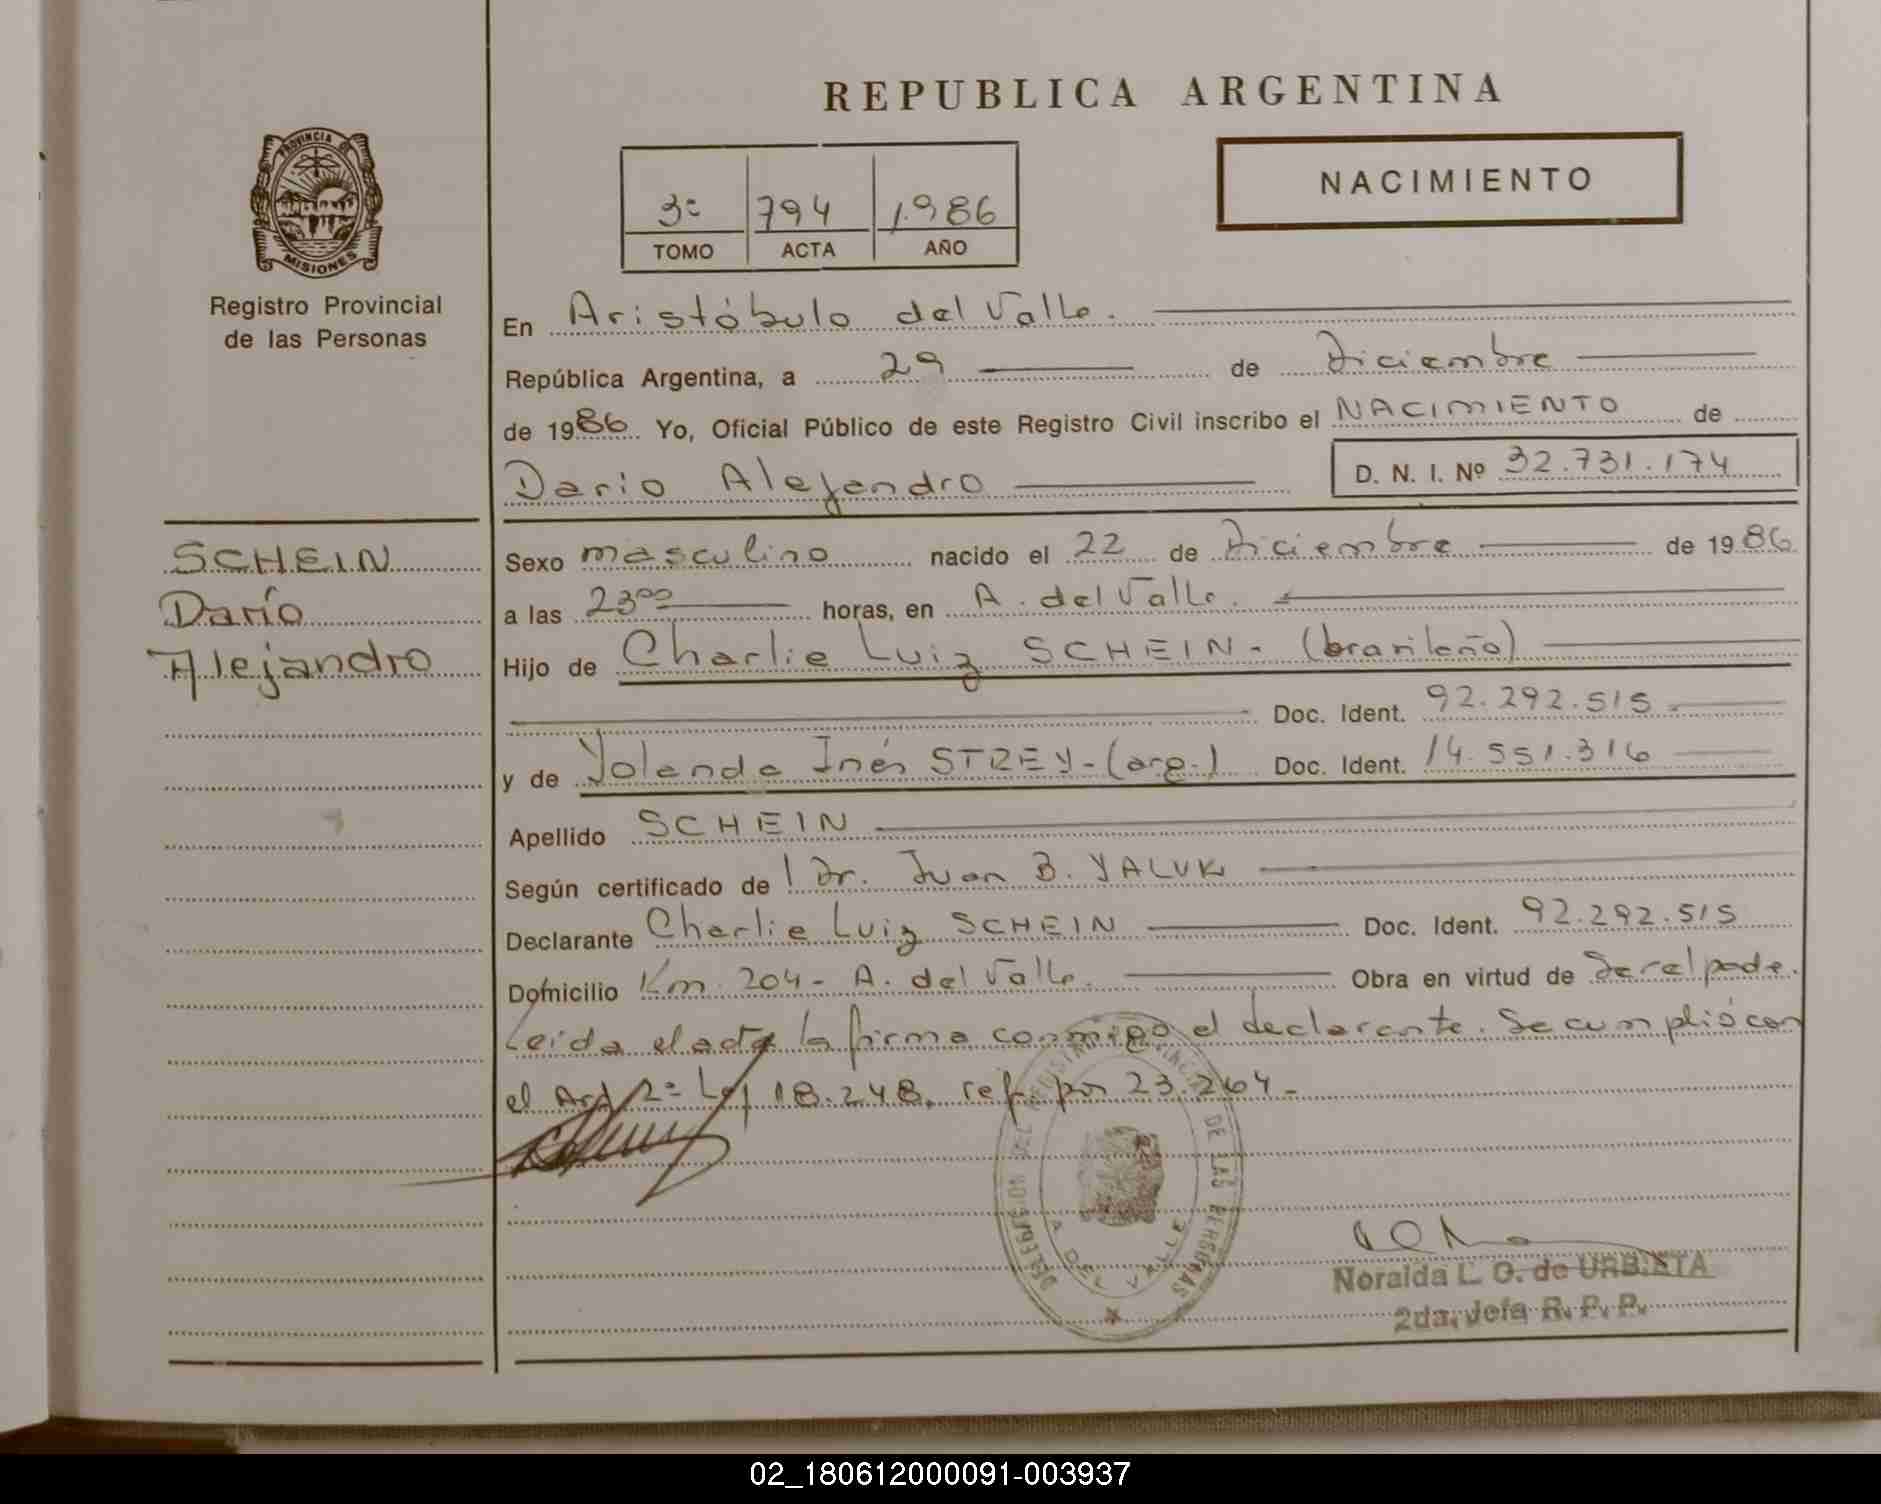 REPUBLICA ARGENTINA
PROVINCIA DE
MISIONES
Registro Provincial
de las Personas
3º 794 1.986
TOMO ACTA AÑO
NACIMIENTO
En Aristóbulo del Valle.
República Argentina, a 29 de Diciembre
de 1986 Yo, Oficial Público de este Registro Civil inscribo el NACIMIENTO de
Dario Alejandro D. N. I. Nº 32.731.174
SCHEIN
Darío
Alejandro
Sexo masculino nacido el 22 de Diciembre de 1986
a las 23⁰⁰ horas, en A. del Valle.
Hijo de Charlie Luiz SCHEIN - (brasileño)
Doc. Ident. 92.292.515.
y de Yolanda Inés STREY - (arg.) Doc. Ident. 14.551.316
Apellido SCHEIN
Según certificado de l Dr. Juan B. YALUK
Declarante Charlie Luiz SCHEIN Doc. Ident. 92.292.515
Domicilio Km. 204 - A. del Valle. Obra en virtud de
Leída el acta la firma conmigo el declarante. Se cumplió con
el Art. 2º Ley 18.248. ref. por 23.264 -
DELEGACION DEL REGISTRO PROVINCIAL DE LAS PERSONAS
A. DEL VALLE
Noralda L. O. de URBIETA
2da. Jefa R. P. P.
02_180612000091-003937